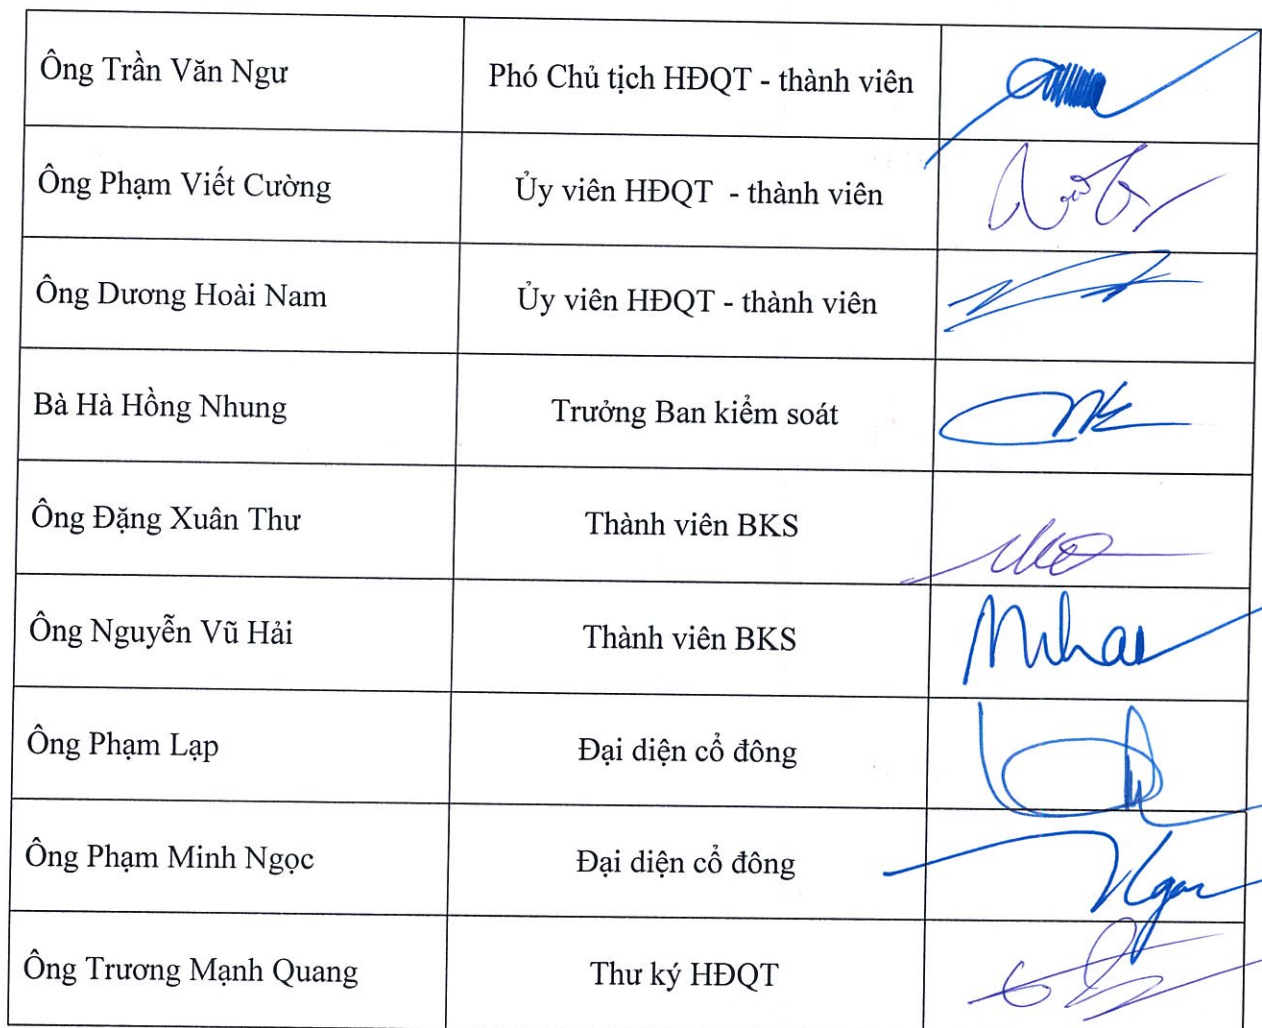 Ông Trần Văn Ngư Phó Chủ tịch HĐQT - thành viên
Ông Phạm Viết Cường Ủy viên HĐQT - thành viên
Ông Dương Hoài Nam Ủy viên HĐQT - thành viên
Bà Hà Hồng Nhung Trưởng Ban kiểm soát
Ông Đặng Xuân Thư Thành viên BKS
Ông Nguyễn Vũ Hải Thành viên BKS
Ông Phạm Lạp Đại diện cổ đông
Ông Phạm Minh Ngọc Đại diện cổ đông
Ông Trương Mạnh Quang Thư ký HĐQT